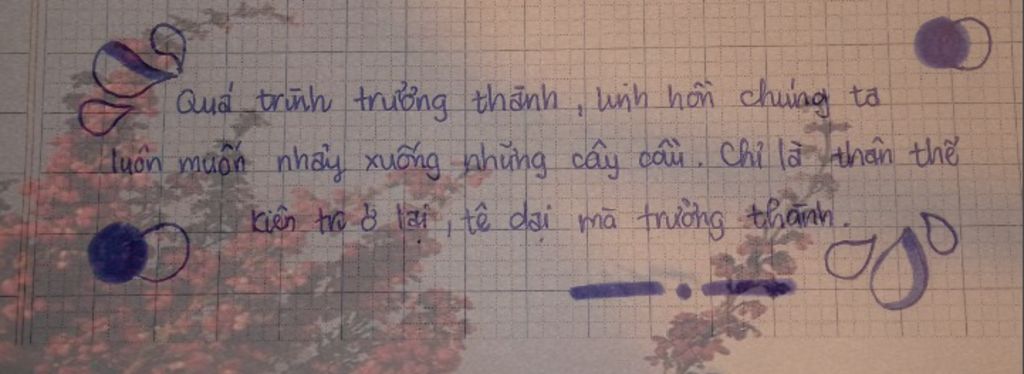 Quá trình trưởng thành, linh hồn chúng ta
luôn muốn nhảy xuống những cây cầu. Chỉ là thân thể
kiên trì ở lại, tê dại mà trưởng thành.